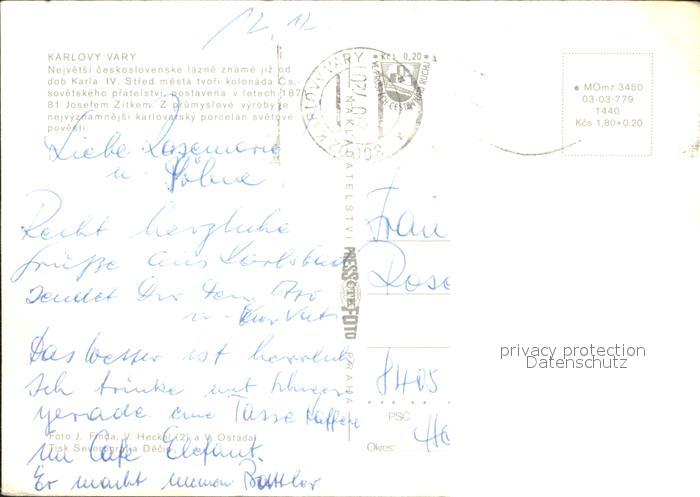 12. 12.
KARLOVY VARY
Největší československé lázně známé již od
dob Karla IV. Střed města tvoří kolonáda Čs.-
sovětského přátelství, postavena v letech 187
81 Josefem Zítkem. Z průmyslové výroby je
nejvýznamnější karlovarský porcelán světové
pověsti.
KARLOVY VARY
Kčs 0,20
MOmz 3450
03-03-779
1440
Kčs 1,80+0,20
Liebe Rosemarie
u. Söhne
Recht herzliche
Grüße aus Karlsbad
sendet Dir
u.
Das Wetter ist herrlich
Ich trinke mit
gerade eine Tasse Kaffee
im Cafe Elefant.
Er macht meinen
NAKLADATELSTVÍ
PRESSFOTO
PRAHA
Frau
Rose
8405
PSČ
Okres:
Foto J. Finda, V. Heckel (2) a V. Ostádal
Tisk Severografia Děčín
privacy protection
Datenschutz